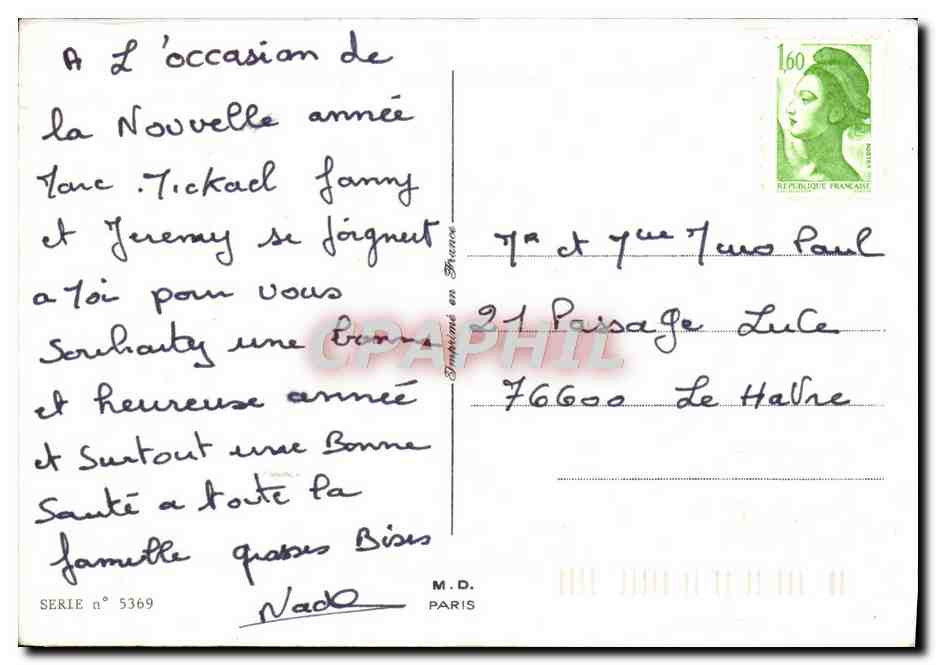 A L'occasion de
la Nouvelle année
Marc Mickael fanny
et Jeremy se joignent
a Moi pour vous
Souhaitez une bonne
et heureuse année
et Surtout une Bonne
Santé a toute la
famille grosses Bises
Nade
SERIE n° 5369
M.D.
PARIS
Imprimé en France
1,60
REPUBLIQUE FRANÇAISE
Mr et Mme Paul
21 Passage Luce
76600 Le Havre
CPAPHIL